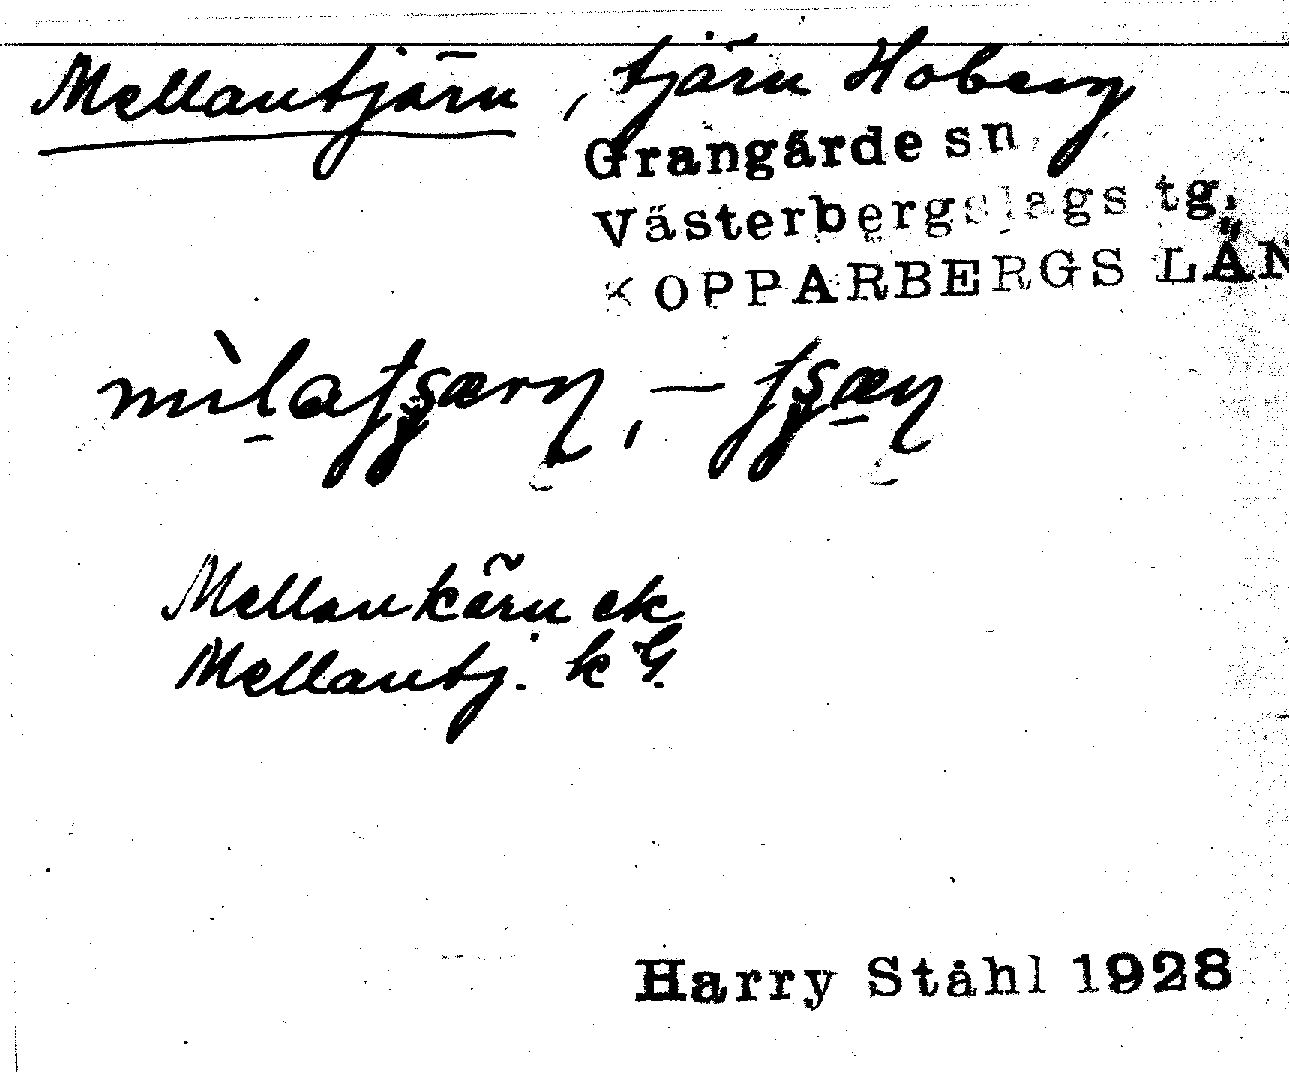 Mellantjärn, tjärn Hoberg
Grangärde sn
Västerbergslags tg.
KOPPARBERGS LÄN
Mellankärn ek
Mellantj. k G.
Harry Ståhl 1928